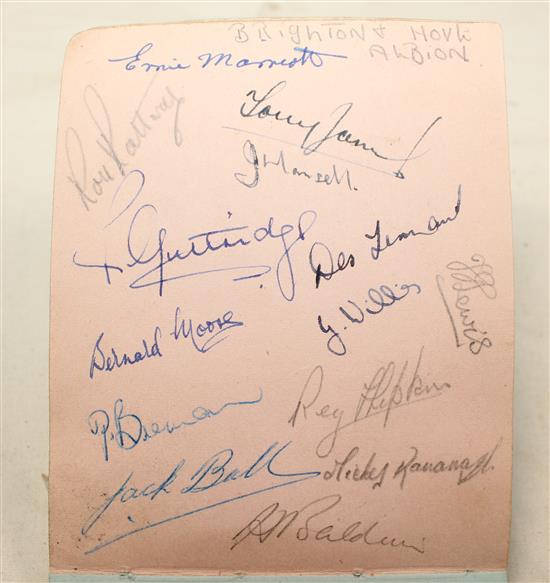 BRIGHTON & HOVE
ALBION
Ernie Marriott
Ron Pattway
Tony James
J Mansell.
R Guttridge
Des Tennant
J Lewis
G. Willis
Bernard Moore
Reg Hipkin
Jack Ball
Mickey Kavanagh.
H Baldwin